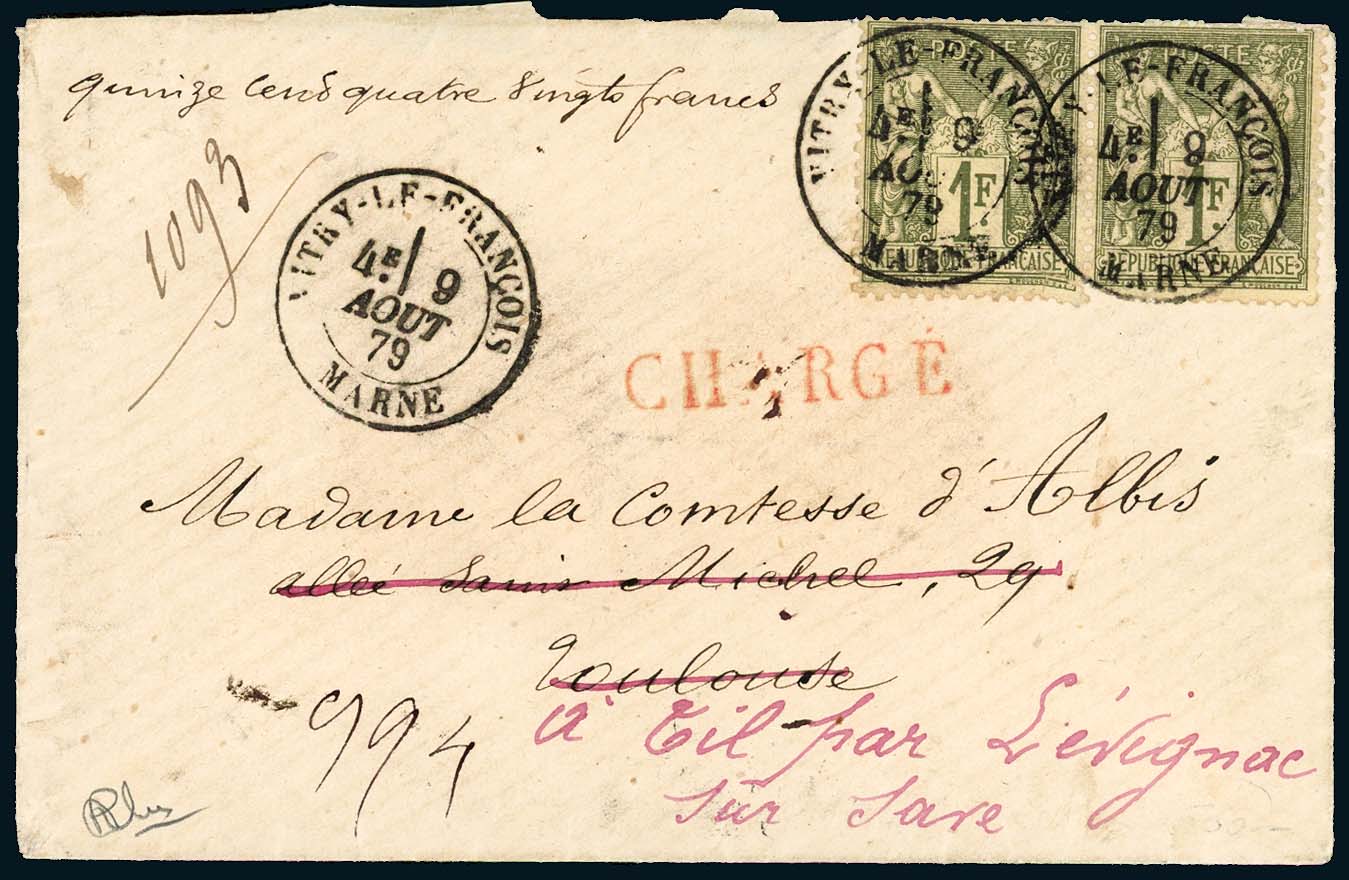 quinze cens quatre vingts francs
POSTE
1F
REPUBLIQUE FRANÇAISE
POSTE
1F
REPUBLIQUE FRANÇAISE
VITRY-LE-FRANÇOIS
4E 9
AOUT
79
MARNE
Y-LE-FRANÇOIS
4E 9
AOUT
79
MARNE
1093
VITRY-LE-FRANÇOIS
4E 9
AOUT
79
MARNE
CHARGÉ
Madame la Comtesse d'Albis
allée Saint Michel, 29
Toulouse
994
à Til par Lévignac
sur Save